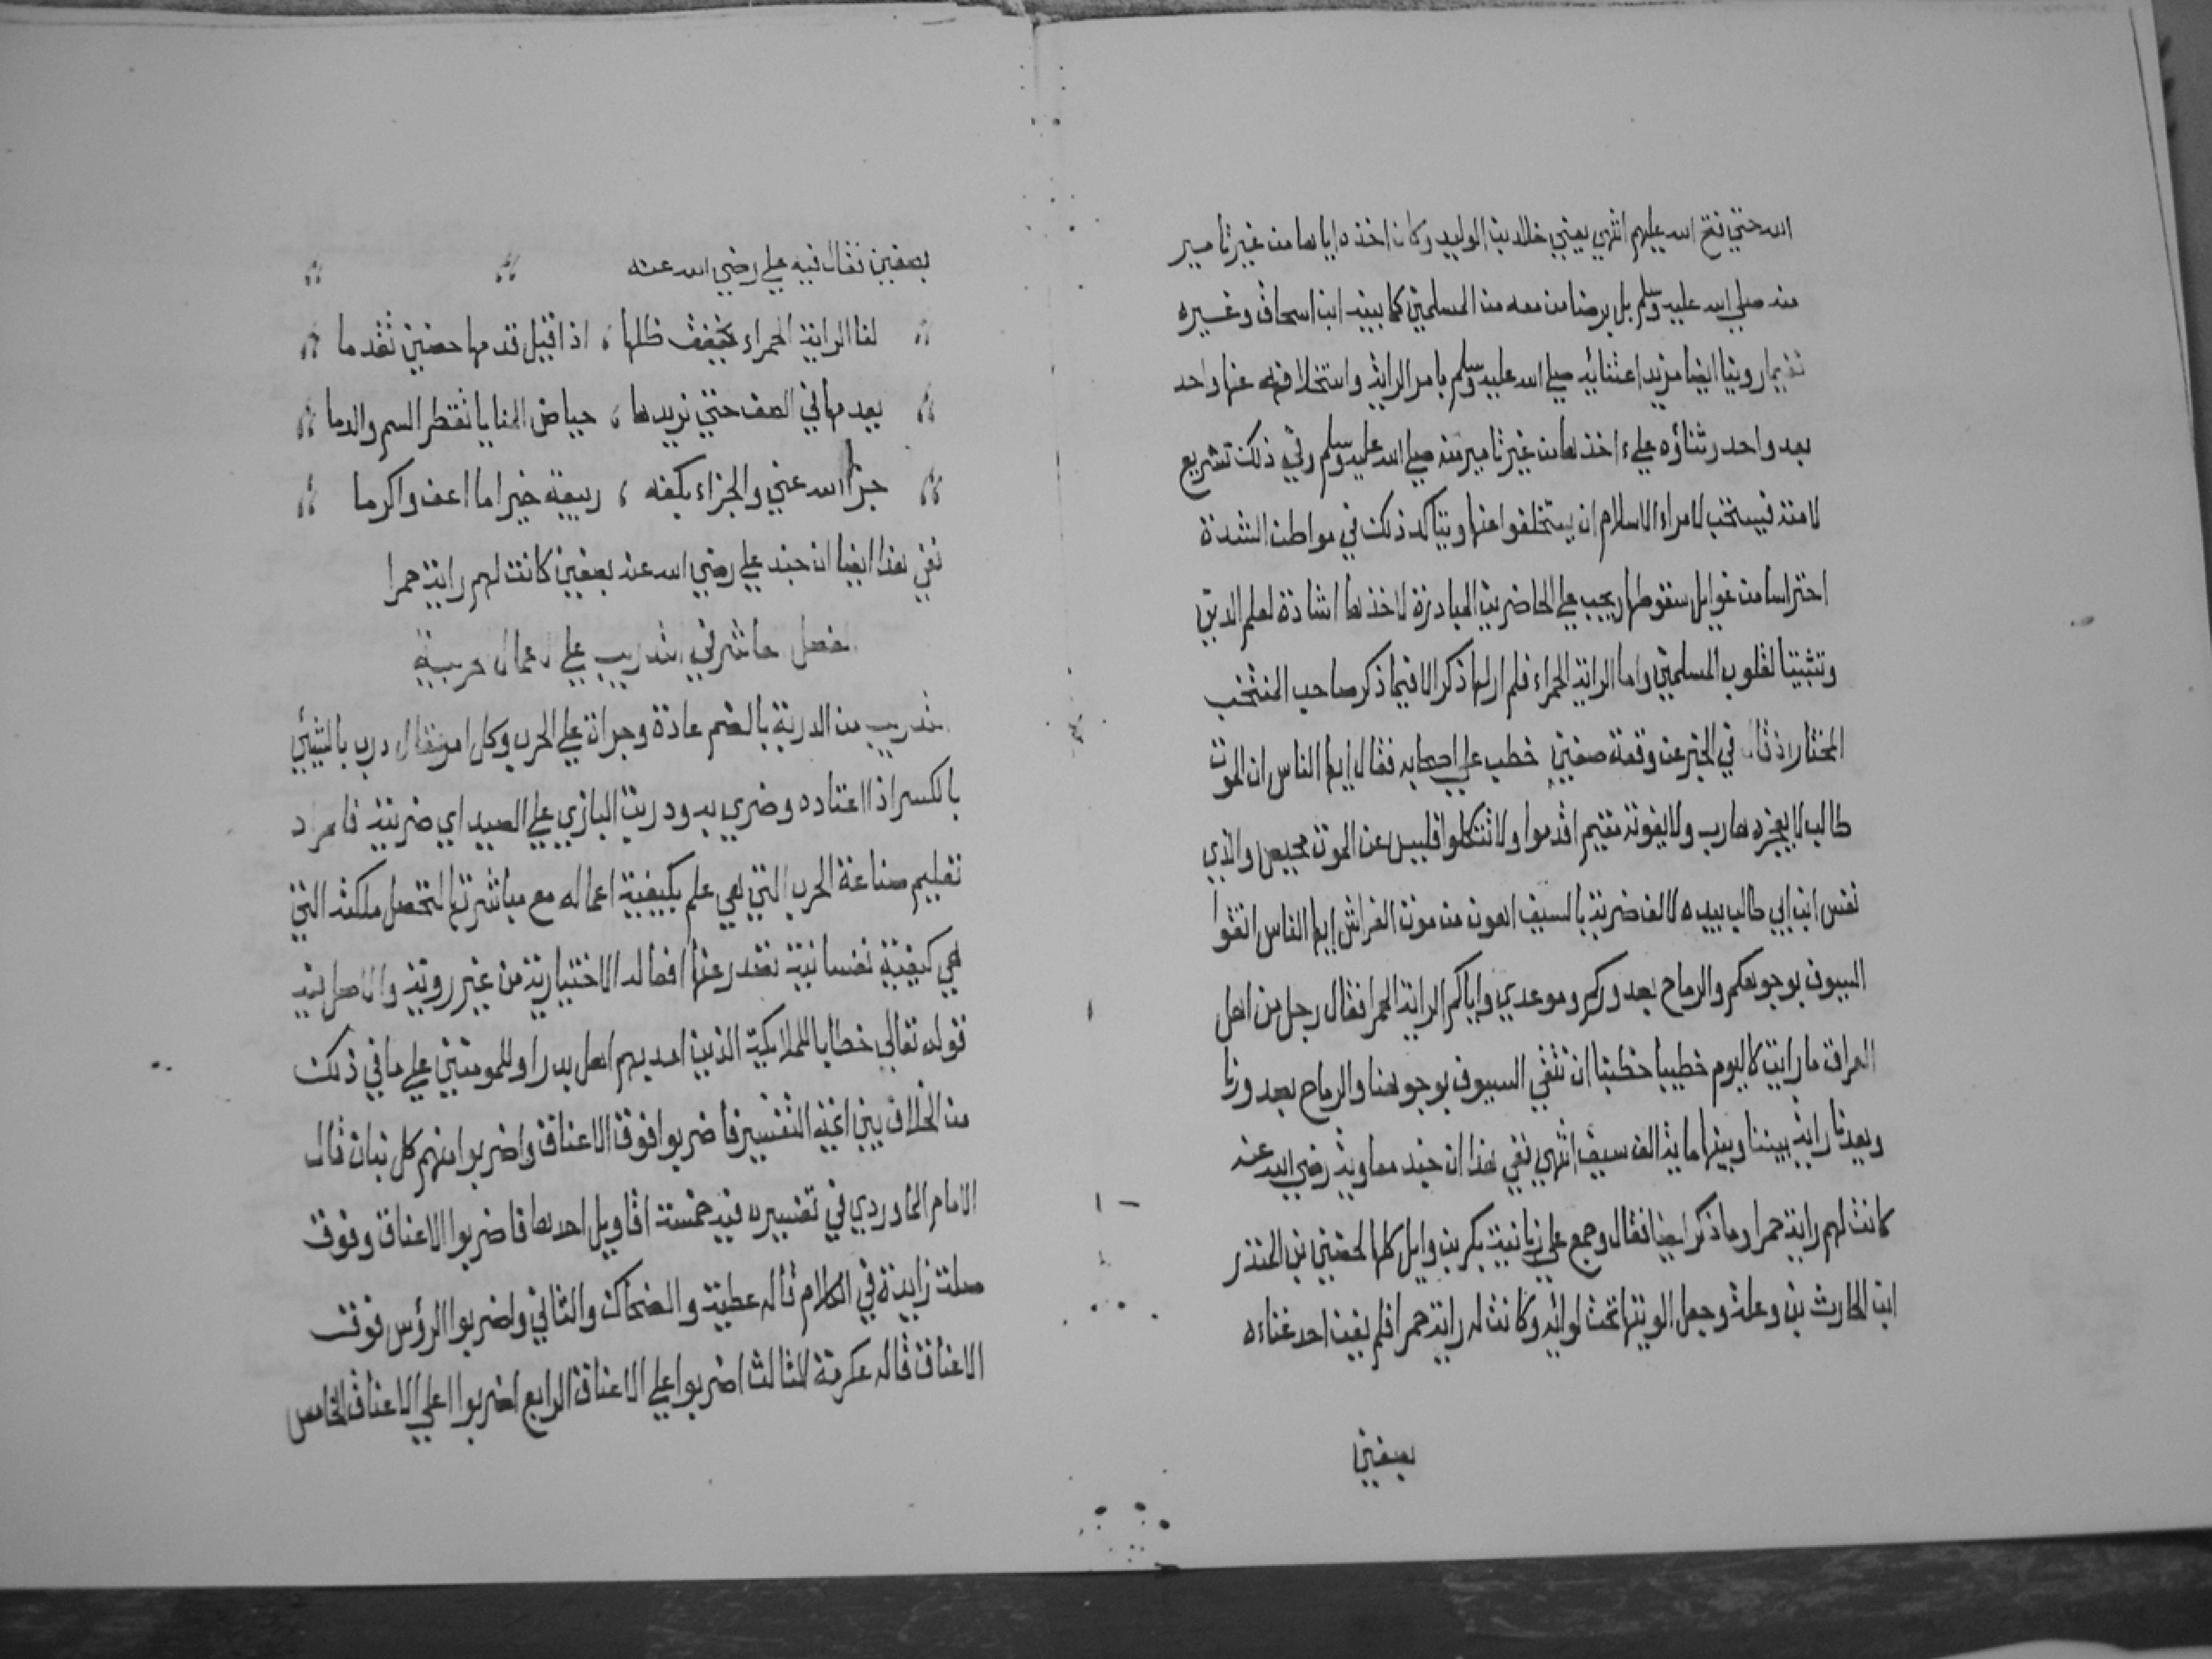 الله حتي فتح الله عليهم انتهي يعني خالد بن الوليد وكان اخذه اياها من غير تامير
منه صلي الله عليه وسلم بل برضا من معه من المسلمين كما بينه ابن اسحاق وغيره
ففيما روينا ايضا مزيد اعتنائه صلي الله عليه وسلم بامر الراية واستخلافه عنها واحد
بعد واحد وثناؤه علي اخذها من غير تامير منه صلي الله عليه وسلم وفي ذلك تشريع
لامته فيستحب لامراء الاسلام ان يستخلفوا عنها ويتاكد ذلك في مواطن الشدة
احتراسا من غوايل سقوطها ويجب علي الحاضرين المبادرة لاخذها اشادة لعلم الدين
وتثبيتا لقلوب المسلمين واما الراية الحمراء فلم ار لها ذكر الا فيما ذكر صاحب المنتخب
المختار اذ قال في الخبر عن وقعة صفين خطب علي اصحابه فقال ايها الناس ان الموت
طالب لا يعجزه هارب ولا يفوته مقيم اقدموا ولا تنكلوا فليس عن الموت محيص والذي
نفس ابن ابي طالب بيده لالف ضربة بالسيف اهون من موت الفراش ايها الناس اتقوا
السيوف بوجوهكم والرماح بصدوركم وموعدي واياكم الراية الحمرا فقال رجل من اهل
العراق ما رايت كاليوم خطيبا خطبنا ان نتقي السيوف بوجوهنا والرماح بصدورنا
ويعدنا راية بيننا وبينها ماية الف سيف انتهي ففي هذا ان جند معاوية رضي الله عنه
كانت لهم راية حمرا وما ذكر ايضا فقال وجمع علي رياسة بكر بن وايل كلها لحضين بن المنذر
ابن الحارث بن وعلة وجعل الويتها تحت لوائه وكانت له راية حمرا فلم يغن احد غناءه
بصفين
بصفين فقال فيه علي رضي الله عنه
لنا الراية الحمراء يخفق ظلها ، اذا قيل قدمها حضين تقدما
يقدمها في الصف حتي نزيدها ، حياض المنايا تقطر السم والدما
جزا الله عني والجزاء بكفه ، ربيعة خيرا ما اعف واكرما
ففي هذا ايضا ان جند علي رضي الله عنه بصفين كانت لهم راية حمرا
لفصل عاشر في التدريب علي الاعمال حربية
التدريب من الدربة بالضم عادة وجراة علي الحرب وكل امر يقال درب بالشيئ
بالكسر اذا اعتاده وضري به ودربت البازي علي الصيد اي ضريته فامراد
تعليم صناعة الحرب التي هي علم بكيفية اعماله مع مباشرتها لتحصل ملكته التي
هي كيفية نفسانية تصدر عنها افعاله الاختيارية من غير روية والاصل فيه
قوله تعالي خطابا للملايكة الذين امد بهم اهل بدر او للمومنين علي ما في ذلك
من الخلاف بين ائمة التفسير فاضربوا فوق الاعناق واضربوا منهم كل بنان قال
الامام الماوردي في تفسيره فيه خمسة اقاويل احدها فاضربوا الاعناق وفوق
صلة زايدة في الكلام قاله عطية والضحاك والثاني واضربوا الرؤس فوق
الاعناق قاله عكرمة الثالث اضربوا علي الاعناق الرابع اضربوا اعلي الاعناق الخامس